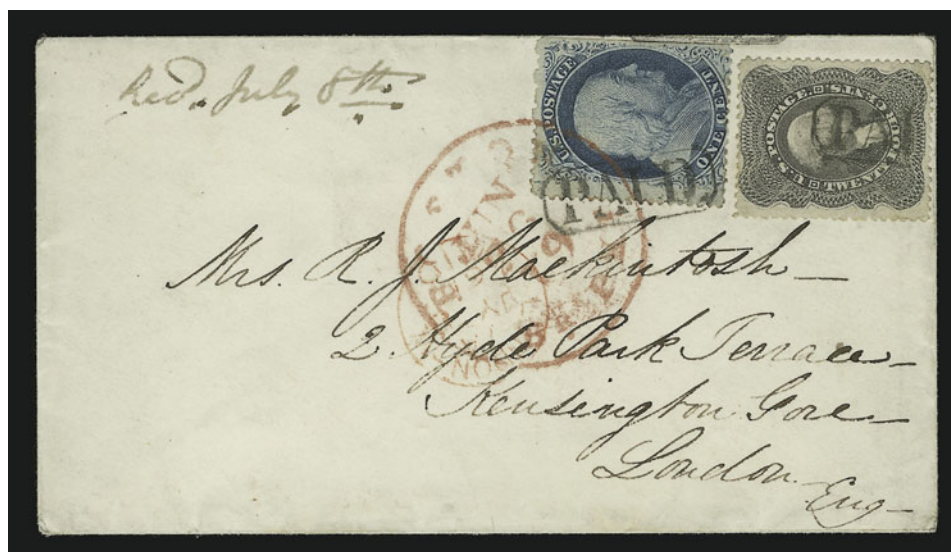 Recd. July 8th
U.S. POSTAGE
ONE CENT
U.S. POSTAGE.
TWENTY FOUR CENTS
PAID
PA
Mrs. R. J. Mackintosh
2. Hyde Park Terrace
Kensington Gore
London
Eng